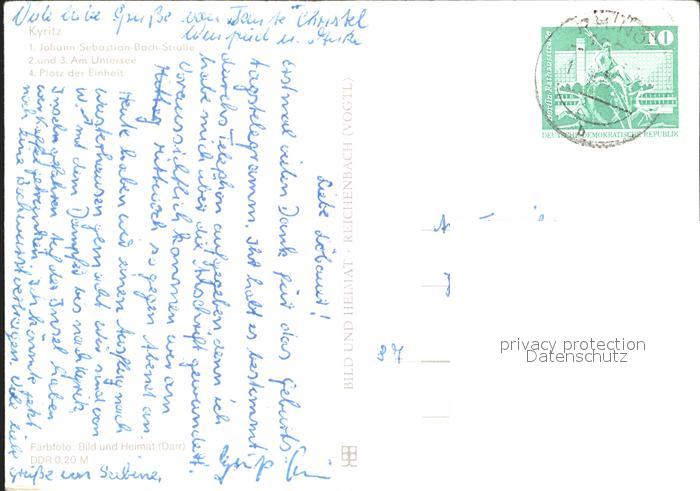 Viele liebe Grüße von "Tante" Christel
Winfried u.
Kyritz
1. Johann-Sebastian-Bach-Straße
2. und 3. Am Untersee
4. Platz der Einheit
Liebe
erstmal vielen Dank für das Geburts-
tagstelegramm. Ihr habt es bestimmt
durchs Telefon aufgegeben denn ich
habe mich über die Anschrift gewundert.
Voraussichtlich kommen wir am
Mittwoch so gegen Abend an.
Heute haben wir einen Ausflug nach
Wusterhausen gemacht. Wir sind von
W. mit dem Dampfer bis nach Kyritz
Insel gefahren. Auf der Insel haben
wir Kaffee getrunken. Ich könnte jetzt
noch eine Bockwurst vertragen. Viele liebe
Grüße von Sabine.
Farbfoto: Bild und Heimat (Darr)
DDR 0,20 M
BILD UND HEIMAT · REICHENBACH (VOGTL)
10
Berlin, Rathausstraße
DEUTSCHE DEMOKRATISCHE REPUBLIK
privacy protection
Datenschutz